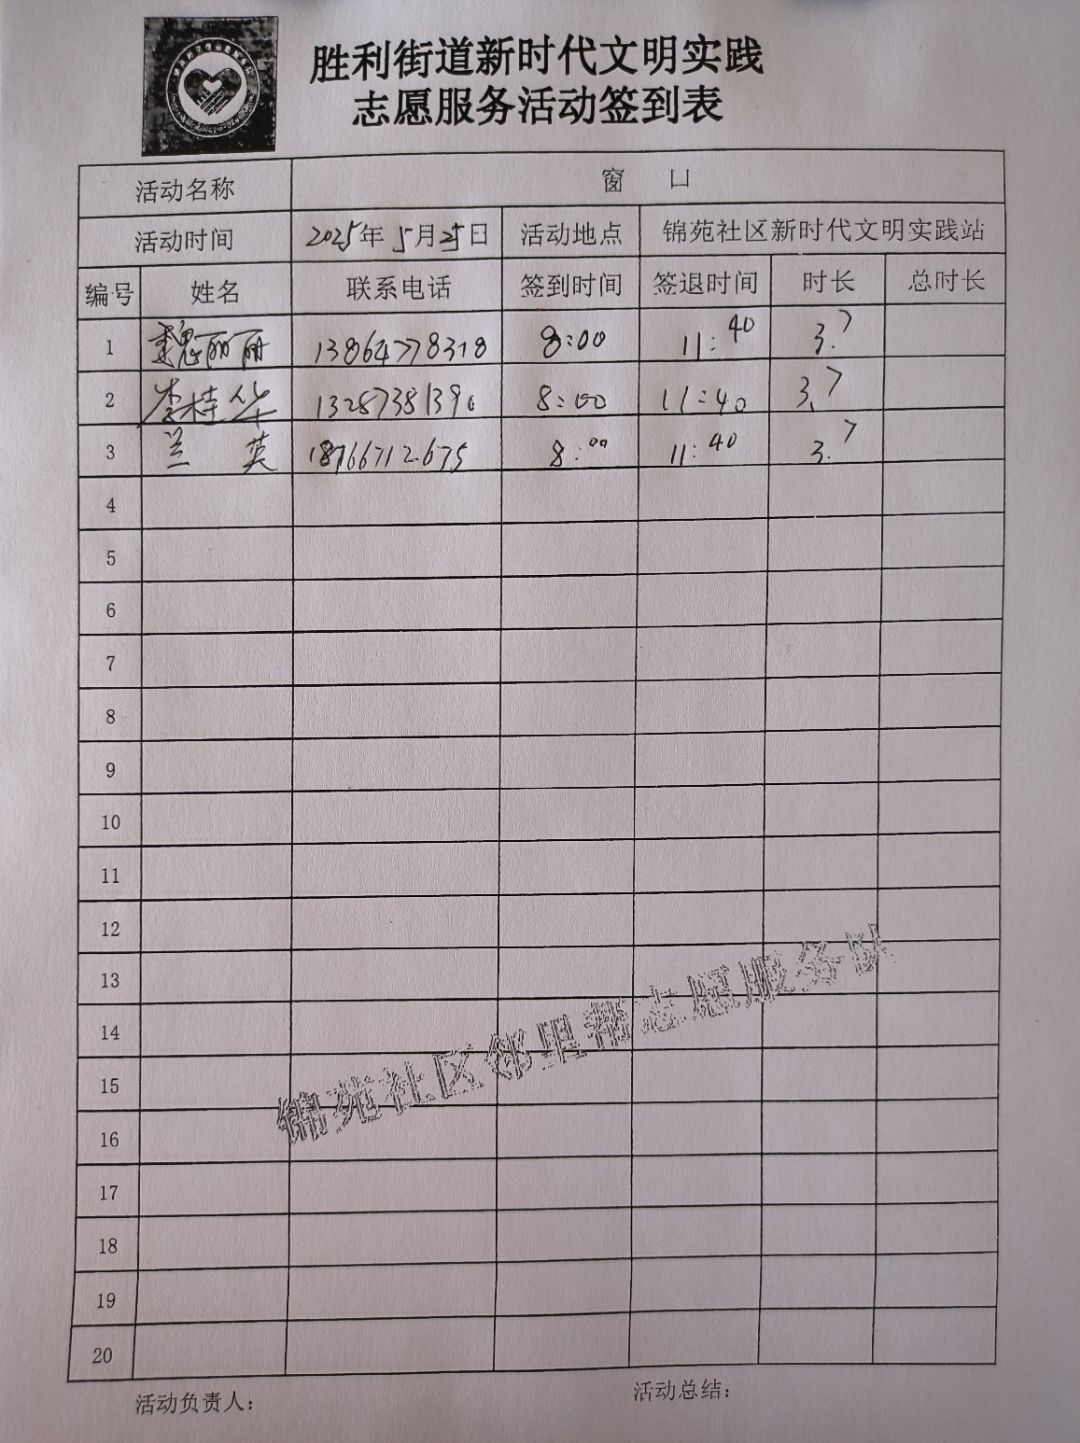 胜利街道新时代文明实践
志愿服务活动签到表
活动名称 窗 口
活动时间 2025年 5月25日 活动地点 锦苑社区新时代文明实践站
编号 姓名 联系电话 签到时间 签退时间 时长 总时长
1 魏丽丽 13864778318 8:00 11:40 3.7
2 李桂华 1328738139 8:00 11:40 3.7
3 兰英 18766712675 8:00 11:40 3.7
4
5
6
7
8
9
10
11
12
13
14
15
16
17
18
19
20
锦苑社区邻里帮志愿服务队
活动负责人： 活动总结：